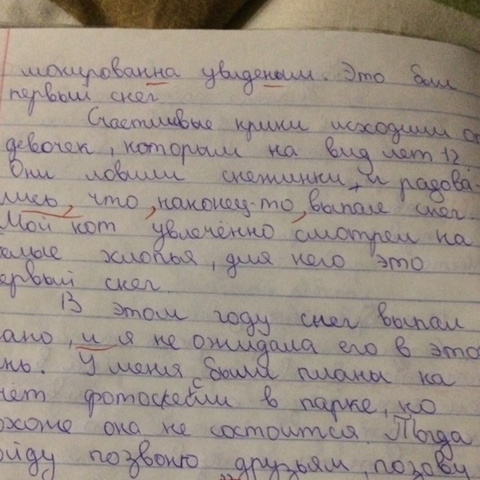 мокированна увиденым. Это был
первый снег
Счастливые крики исходили от
девочек, которым на вид лет 12
Они ловили снежинки, и радова-
лись, что, наконец-то, выпал снег.
Мой кот увлечённо смотрел на
елые хлопья, для него это
ервый снег.
В этом году снег выпал
ано, и я не ожидала его в это
нь. У меня были планы на
чет фотосессии в парке, но
охоже она не состоится. Тогда
ойду позвоню друзьям, позову